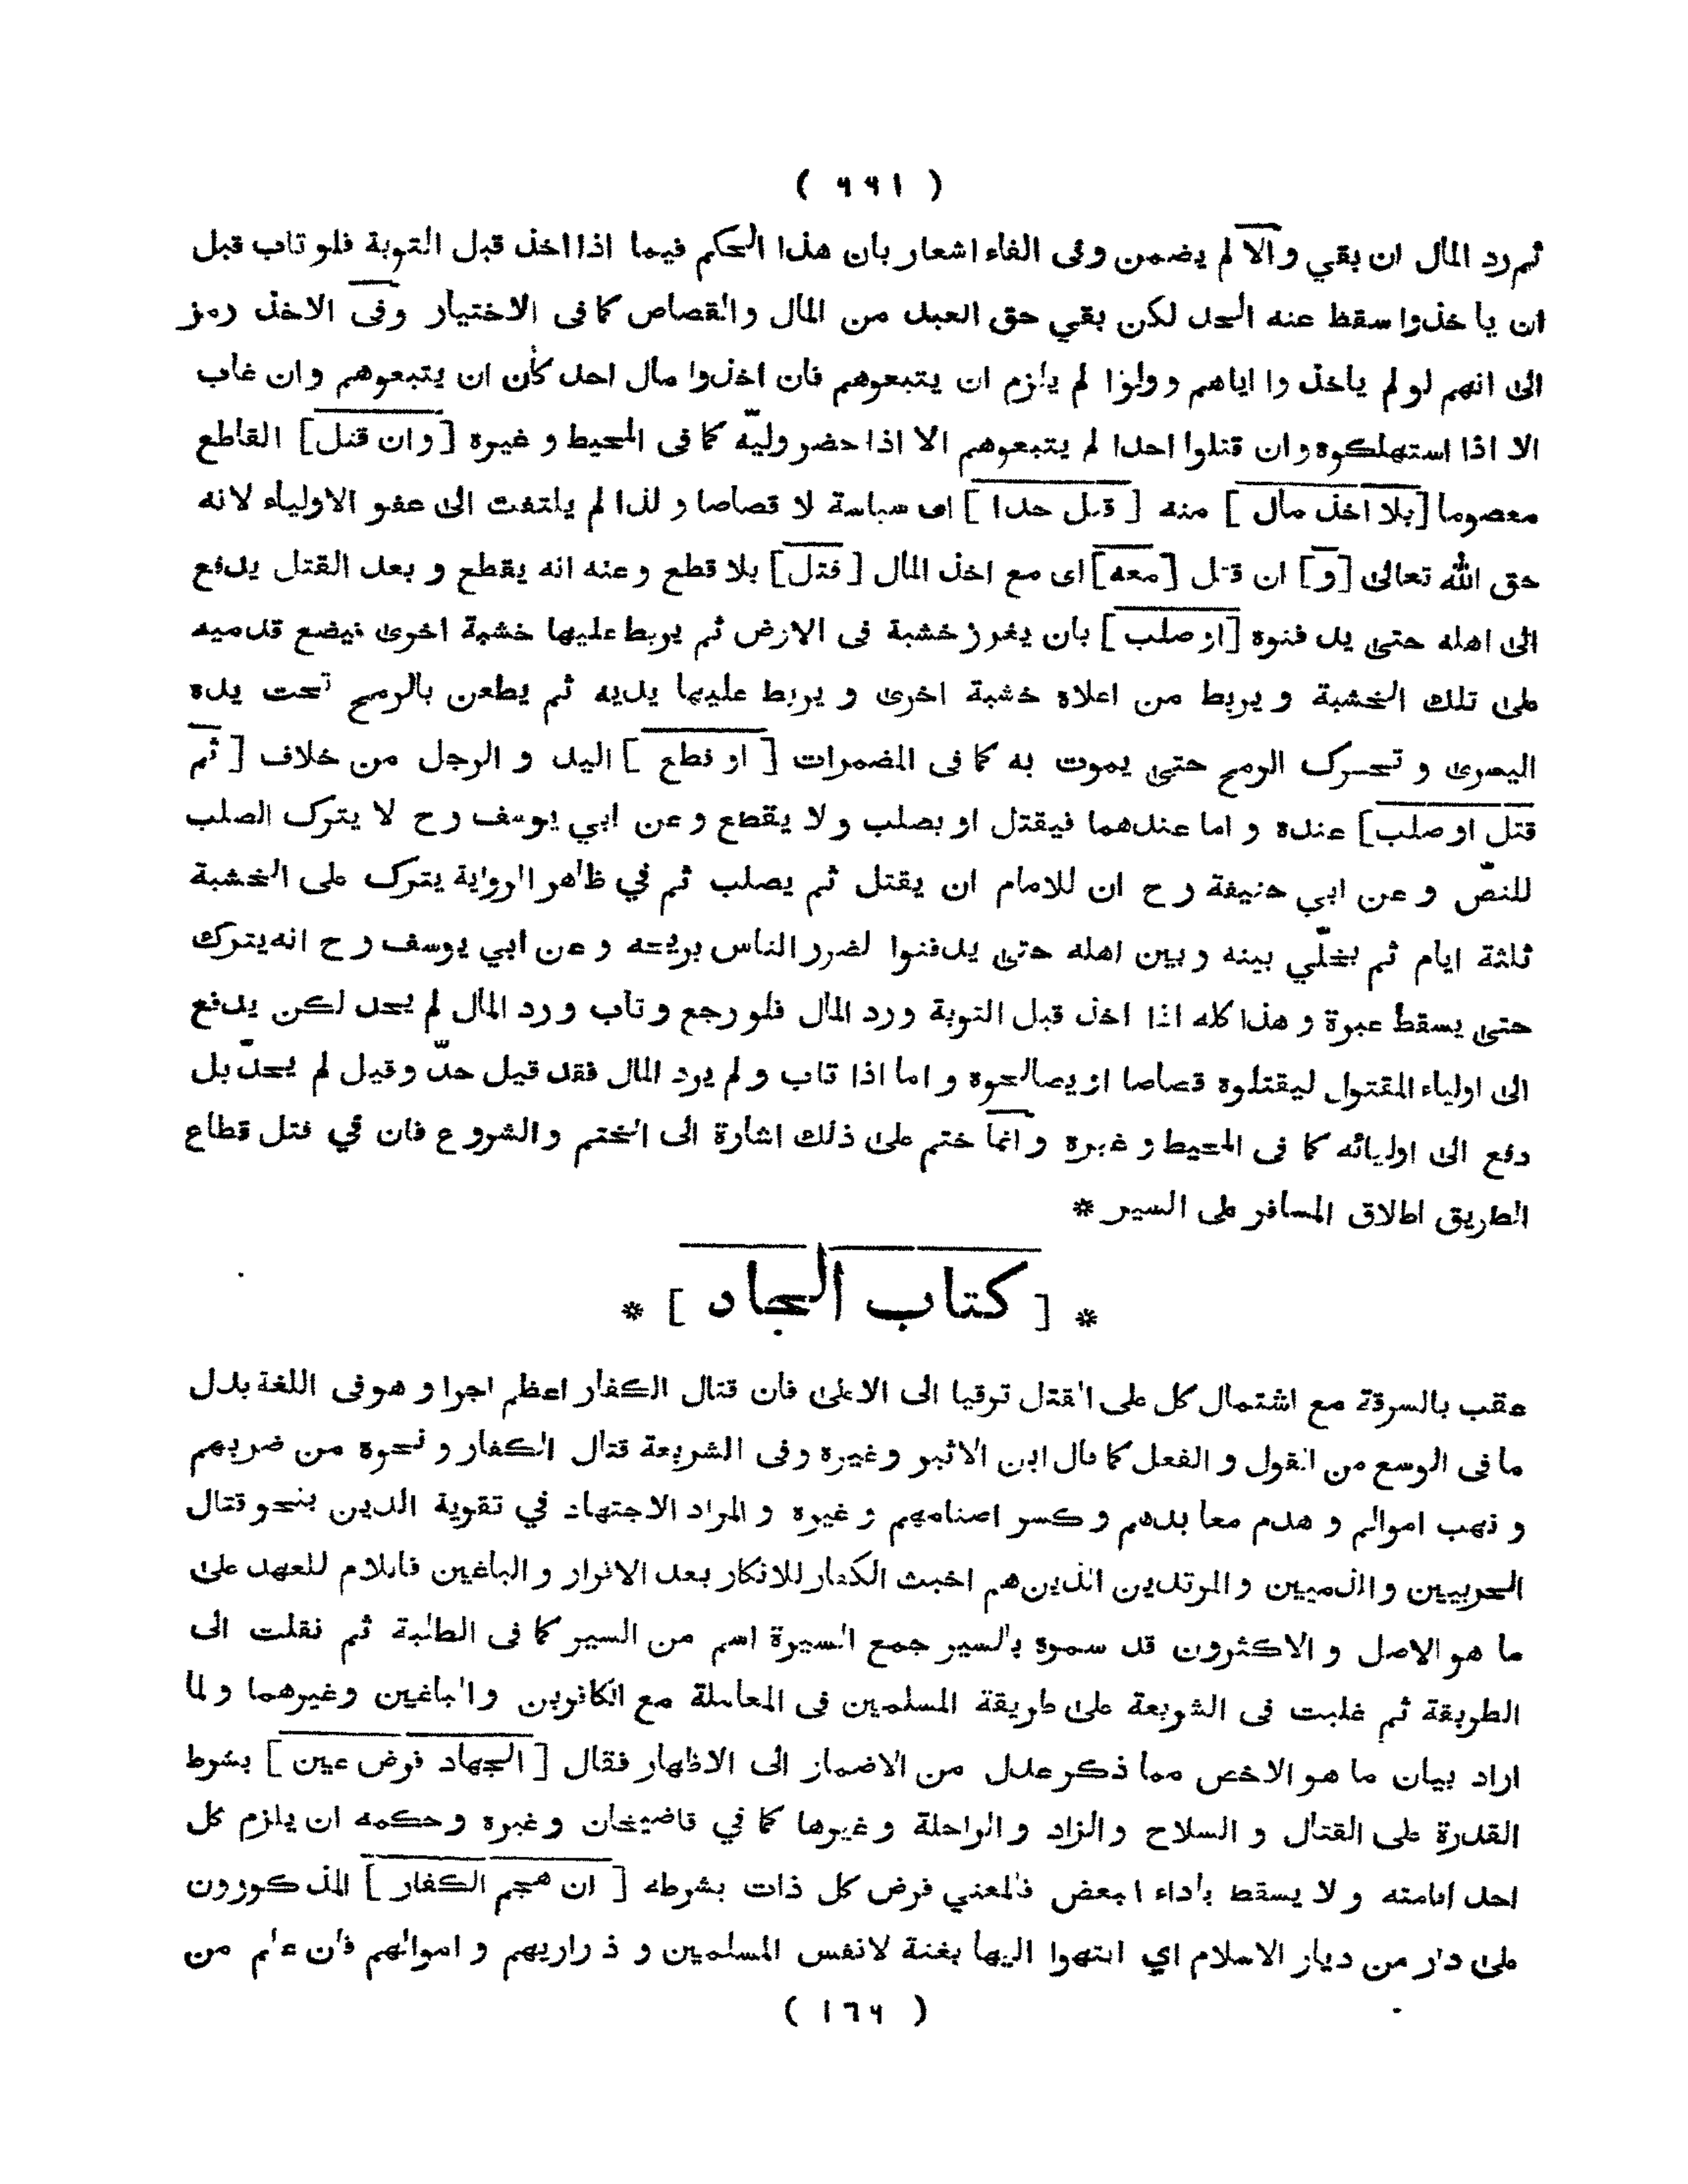 ( ٦٦١ )
ثم رد المال ان بقي و الا لم يضمن وفى الفاء اشعار بان هذا الحكم فيما اذا اخذ قبل التوبة فلو تاب قبل
ان ياخذوا سقط عنه الحد لكن بقي حق العبد من المال والقصاص كما فى الاختيار وفى الاخذ رمز
الى انهم لو لم ياخذ وا اياهم وولوا لم يلزم ان يتبعوهم فان اخذوا مال احد كان ان يتبعوهم وان غاب
الا اذا استهلكوه وان قتلوا احدا لم يتبعوهم الا اذا حضر وليّه كما فى المحيط و غيره [ وان قتل ] القاطع
معصوما [ بلا اخذ مال ] منه [ قتل حدا ] اى سياسة لا قصاصا و لذا لم يلتفت الى عفو الاولياء لانه
حق الله تعالى [ و ] ان قتل [ معه ] اى مع اخذ المال [ قتل ] بلا قطع وعنه انه يقطع و بعد القتل يدفع
الى اهله حتى يد فنوه [ او صلب ] بان يغرز خشبة فى الارض ثم يربط عليها خشبة اخرى فيضع قدميه
على تلك الخشبة و يربط من اعلاه خشبة اخرى و يربط عليها يديه ثم يطعن بالرمح تحت يده
اليسرى و تحرك الرمح حتى يموت به كما فى المضمرات [ او قطع ] اليد و الرجل من خلاف [ ثم
قتل او صلب ] عنده و اما عندهما فيقتل او يصلب ولا يقطع و عن ابي يوسف رح لا يترك الصلب
للنصّ و عن ابي حنيفة رح ان للامام ان يقتل ثم يصلب ثم في ظاهر الرواية يترك على الخشبة
ثلثة ايام ثم يخلّي بينه وبين اهله حتى يدفنوا لضرر الناس بريحه و عن ابي يوسف رح انه يترك
حتى يسقط عبرة و هذا كله اذا اخذ قبل التوبة ورد المال فلو رجع و تاب و رد المال لم يحد لكن يدفع
الى اولياء المقتول ليقتلوه قصاصا او يصالحوه و اما اذا تاب و لم يرد المال فقد قيل حدّ وقيل لم يحدّ بل
دفع الى اوليائه كما فى المحيط و غيره و انما ختم على ذلك اشارة الى الختم والشروع فان في قتل قطاع
الطريق اطلاق المسافر على السير *
* [ كتاب الجهاد ] *
عقب بالسرقة مع اشتمال كل على القتل ترقيا الى الاعلى فان قتال الكفار اعظم اجرا و هو فى اللغة بدل
ما فى الوسع من القول و الفعل كما قال ابن الاثير وغيره وفى الشريعة قتال الكفار و نحوه من ضربهم
و نهب اموالهم و هدم معا بدهم و كسر اصنامهم و غيره و المراد الاجتهاد في تقوية الدين بنحو قتال
الحربيين والذميين والمرتدين الذين هم اخبث الكفار للانكار بعد الاقرار و الباغين فاللام للعهد على
ما هو الاصل و الاكثرون قد سموه بالسير جمع السيرة اسم من السير كما فى الطلبة ثم نقلت الى
الطريقة ثم غلبت فى الشريعة على طريقة المسلمين فى المعاملة مع الكافرين والباغين وغيرهما و لما
اراد بيان ما هو الاخص مما ذكر عدل من الاضمار الى الاظهار فقال [ الجهاد فرض عين ] بشرط
القدرة على القتال و السلاح والزاد و الراحلة وغيرها كما في قاضيخان وغيره وحكمه ان يلزم كل
احد اقامته و لا يسقط باداء البعض فالمعني فرض كل ذات بشرطه [ ان هجم الكفار ] المذ كورون
على دار من ديار الاسلام اي انتهوا اليها بغتة لانفس المسلمين و ذراريهم و اموالهم فان علم من
( ١٦٦ )